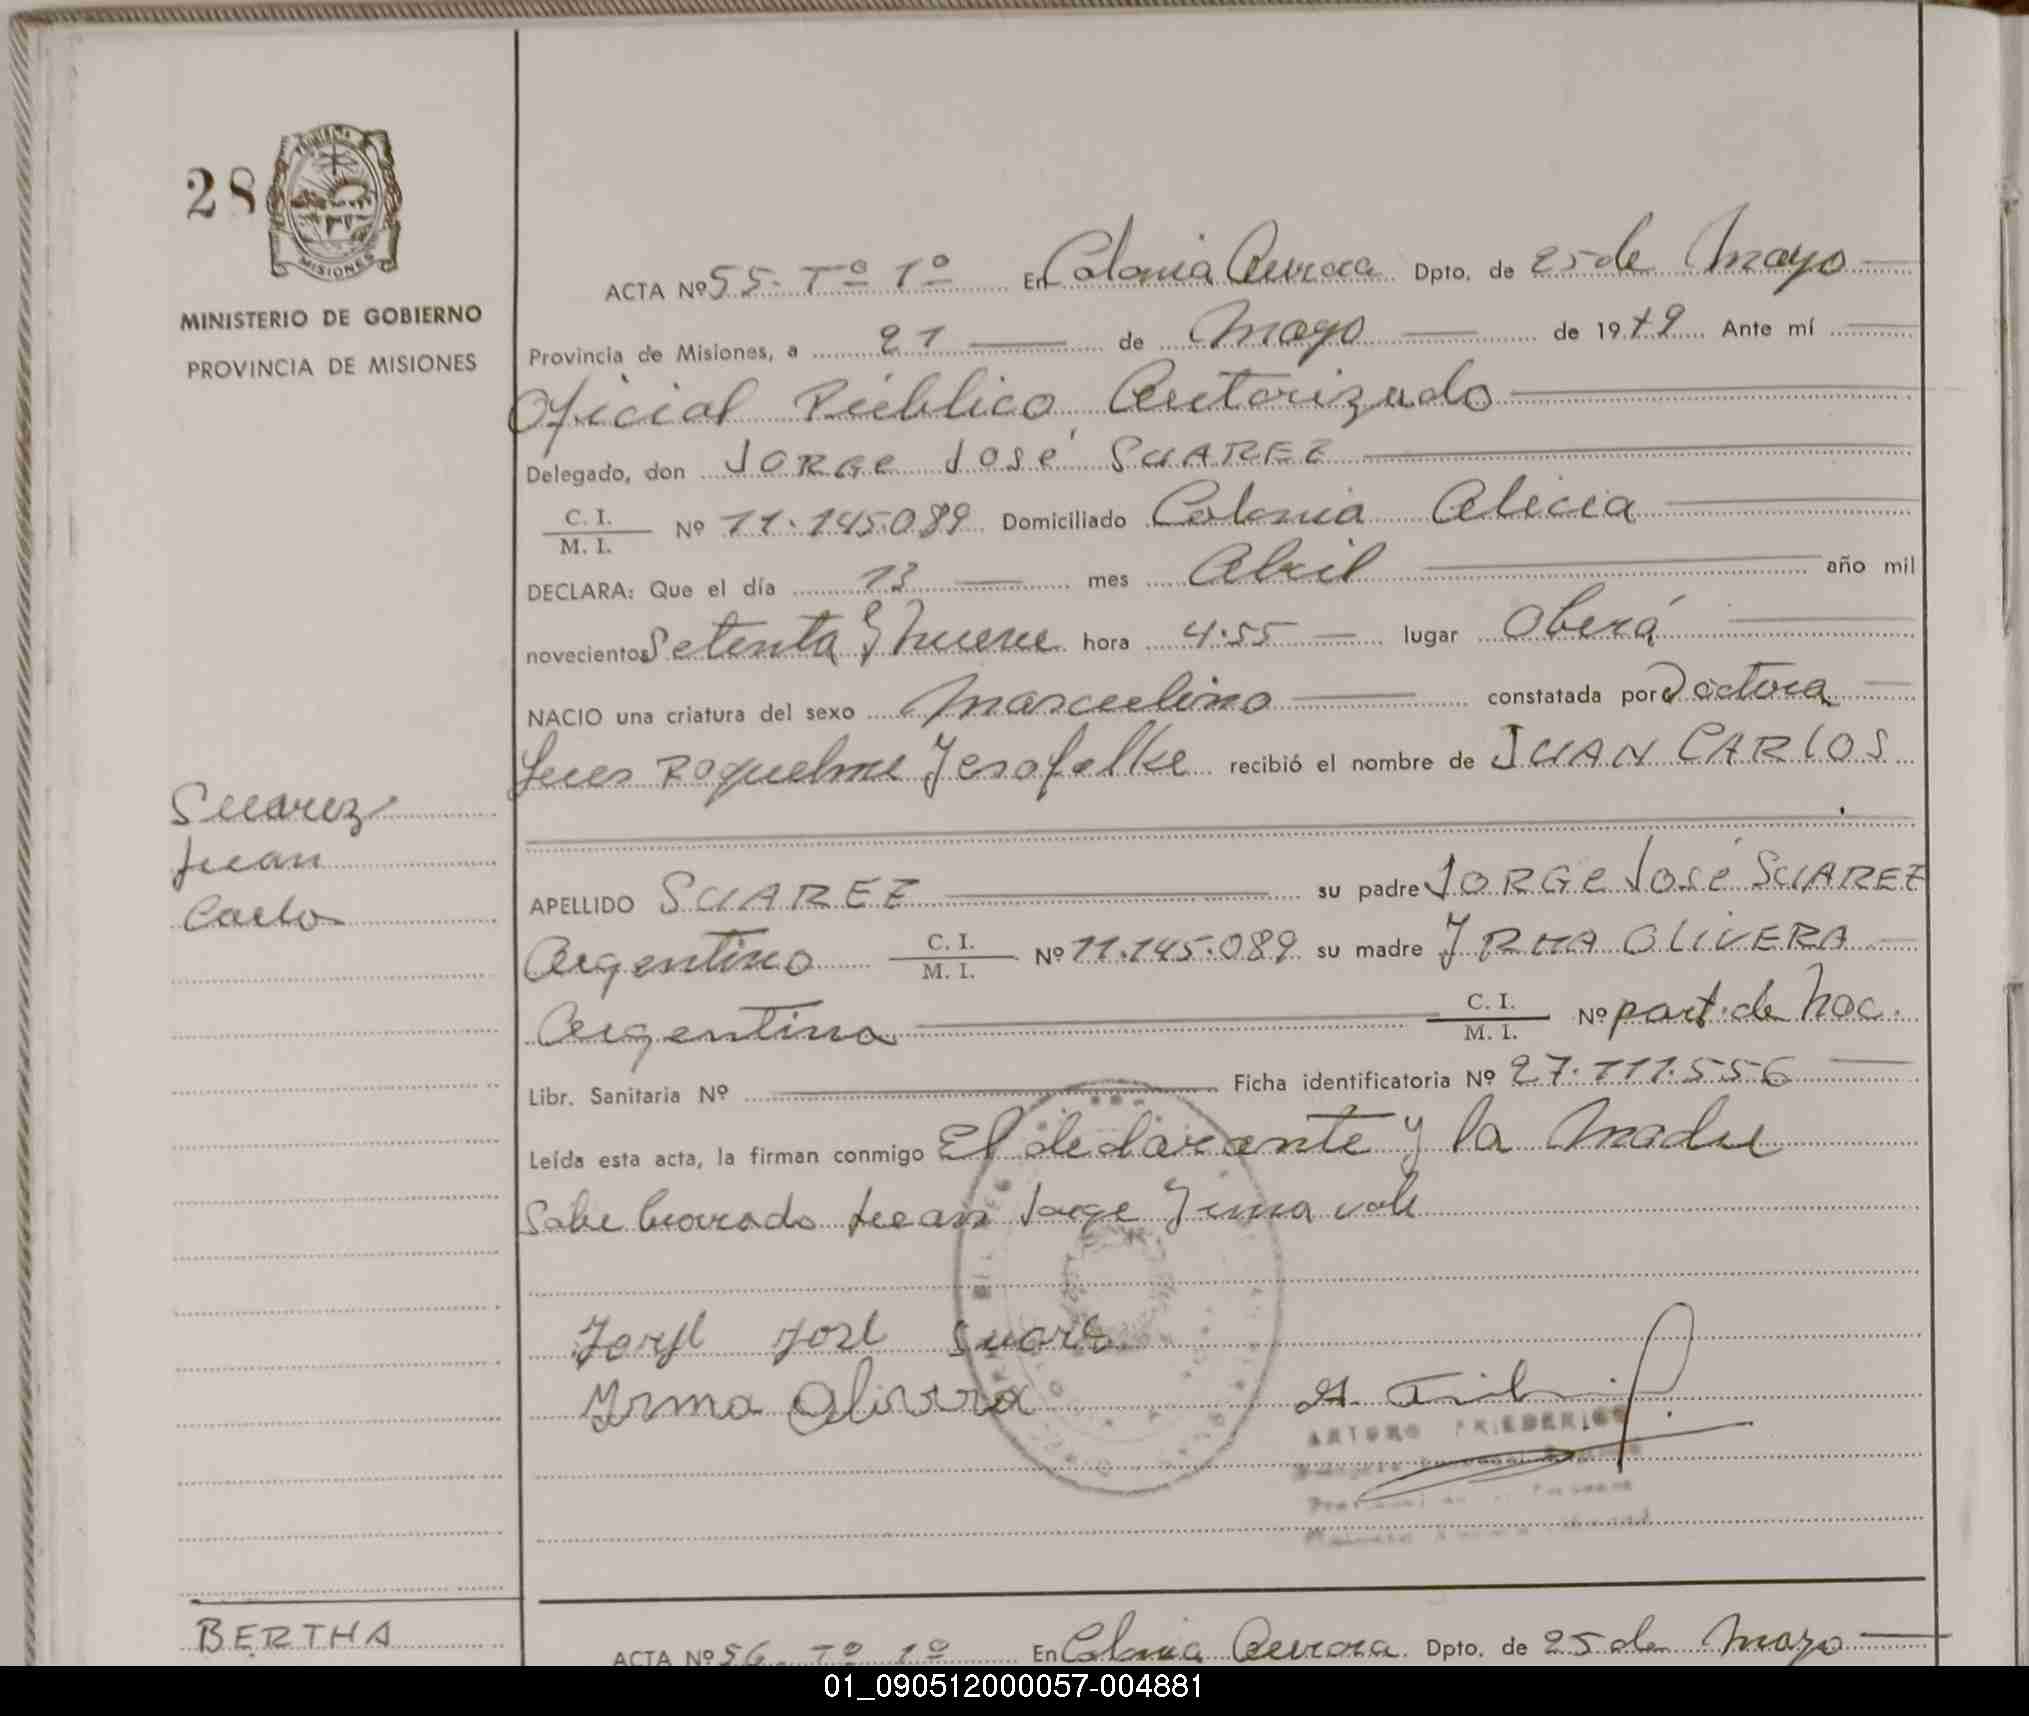 28
MISIONES
MINISTERIO DE GOBIERNO
PROVINCIA DE MISIONES
ACTA Nº 55- Tº 1º En Colonia Aurora Dpto. de 25 de Mayo
Provincia de Misiones, a 21 de Mayo de 1979 Ante mí
Oficial Público Autorizado
Delegado, don JORGE JOSÉ SUAREZ
C. I. / M. I. Nº 11.145.089 Domiciliado Colonia Alicia
DECLARA: Que el día 13 mes Abril año mil
novecientos Setenta y nueve hora 4:55 lugar Oberá
NACIO una criatura del sexo Masculino constatada por Doctora
recibió el nombre de JUAN CARLOS
Suarez
Juan
Carlos
APELLIDO SUAREZ su padre JORGE JOSÉ SUAREZ
Argentino C. I. / M. I. Nº 11.145.089 su madre YRMA OLIVERA
Argentina C. I. / M. I. Nº part. de Nac.
Libr. Sanitaria Nº Ficha identificatoria Nº 27.111.556
Leída esta acta, la firman conmigo El declarante y la Madre
Sobre borrado Juan Jorge Yrma vale
Jorge José Suarez
Yrma Olivera
ARTURO FRIEDERICH
BERTHA
ACTA Nº 56 Tº 1º En Colonia Aurora Dpto. de 25 de Mayo
01_090512000057-004881